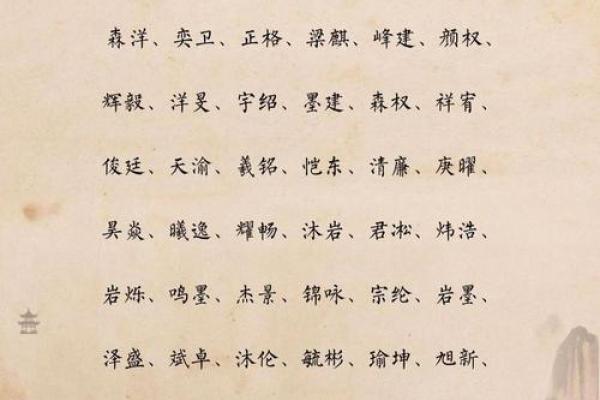 森洋、奕卫、正格、梁麒、峰建、颜权、
辉毅、洋旻、宇绍、墨建、森权、祥宥、
俊廷、天渝、羲铭、恺东、清廉、庚曜、
昊焱、曦逸、耀畅、沐岩、君凇、炜浩、
岩烁、鸣墨、杰景、锦咏、宗纶、岩墨、
泽盛、斌卓、沐伦、毓彬、瑜坤、旭新、